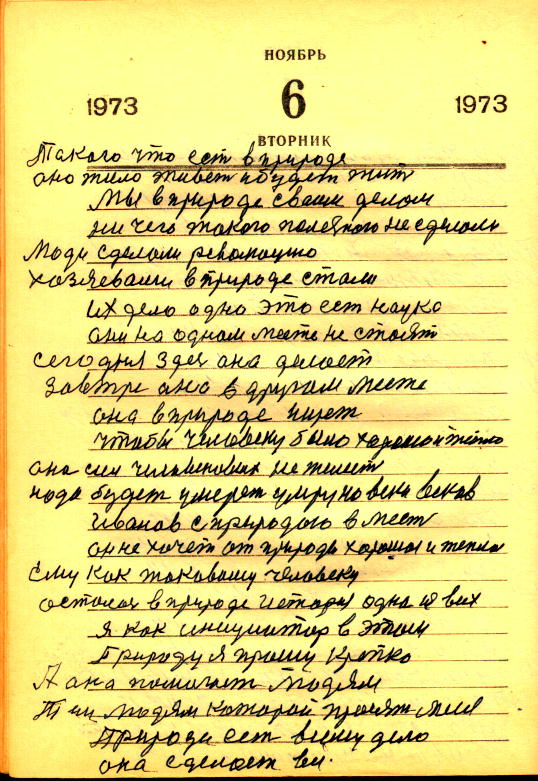 НОЯБРЬ
1973 6 1973
ВТОРНИК
Такого что ест в природе
оно жило живет и будет жит
Мы в природе сваим делом
ни чего такого полезного не сделали
Люди сделали революцию
хозяевами в природе стали
их дело одно это ест наука
они на одном месте не стоят
сегодня здес она делает
завтре она в другом месте
она в природе ищет
чтобы человеку было хорошо и тепло
она сил человеческих не жилеет
надо будет умерет умру на веки веков
Иванов с природаю в мест
он не хочет от природы хорошая и тепла
Ему как таковаму человеку
осталас в природе история одна из вих
я как инициатор в этом
Природу я прошу кротко
А она помогает людям
Тем людям которой просят меня
Природа ест всиму дело
она сделает все.